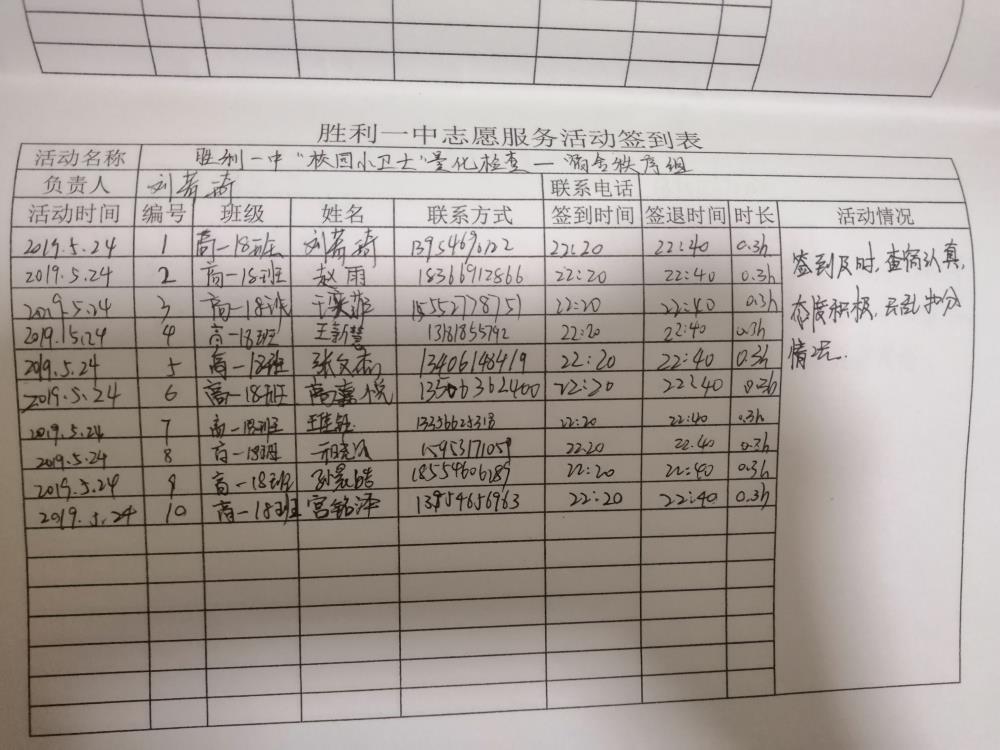 胜利一中志愿服务活动签到表
活动名称 胜利一中“校园小卫士”量化检查一 宿舍秩序组
负责人 刘若琦 联系电话
活动时间 编号 班级 姓名 联系方式 签到时间 签退时间 时长 活动情况
2019.5.24 1 高一18班 刘若琦 22:20 22:40 0.3h
2019.5.24 2 高一18班 赵雨 18366912866 22:20 22:40 0.3h
2019.5.24 3 高一18班 15552778751 22:20 22:40 0.3h
2019.5.24 4 高一18班 王新慧 22:20 22:40 0.3h
2019.5.24 5 高一18班 张文杰 13406148419 22:20 22:40 0.3h
2019.5.24 6 高一18班 高嘉悦 13506362400 22:20 22:40 0.3h
2019.5.24 7 高一18班 22:20 22:40 0.3h
2019.5.24 8 高一18班 22:20 22:40 0.3h
2019.5.24 9 高一18班 18554606289 22:20 22:40 0.3h
2019.5.24 10 高一18班 宫铭泽 13954656963 22:20 22:40 0.3h
签到及时,查宿认真,
态度积极,无乱扣分
情况.